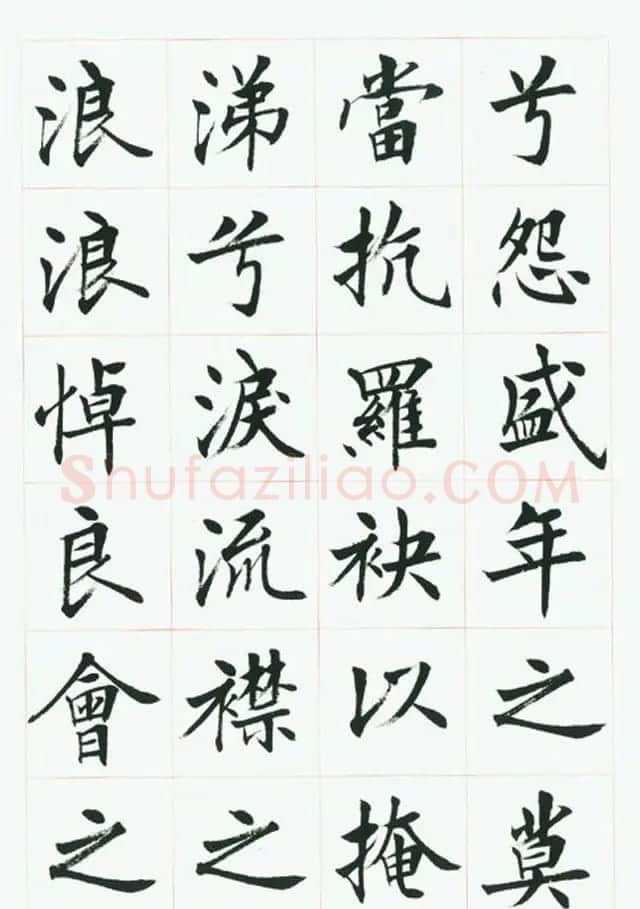 兮怨盛年之莫
當抗羅袂以掩
涕兮淚流襟之
浪浪悼良會之
Shufaziliao.COM